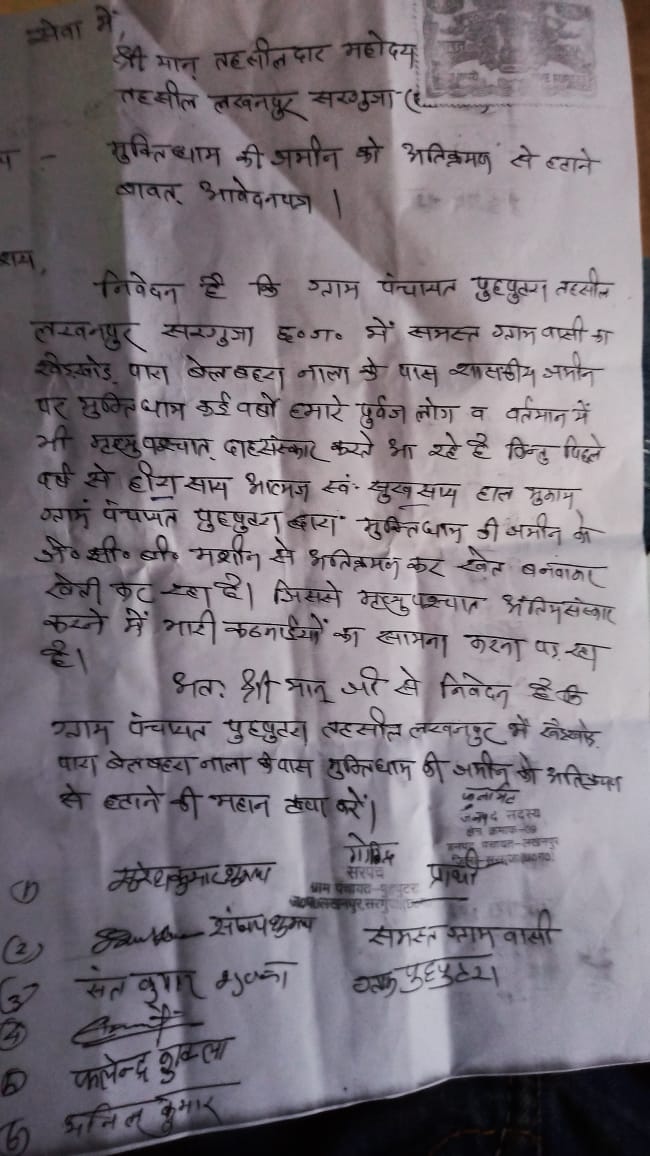 सेवा में,
श्री मान् तहसीलदार महोदय
तहसील लखनपुर सरगुजा (छ..........)
मुक्तिधाम की जमीन को अतिक्रमण से हटाने
बावत् आवेदनपत्र ।
निवेदन है कि ग्राम पंचायत पुहपुटरा तहसील
लखनपुर सरगुजा छ०ग० में समस्त ग्राम वासी का
पारा बेलबहरा नाला के पास शासकीय जमीन
पर मुक्तिधाम कई वर्षो हमारे पुर्वज लोग व वर्तमान में
भी मृत्युपश्चात् दाहसंस्कार करते आ रहे है किन्तु पिछले
वर्ष से हीरा साय आत्मज स्व० सुख साय हाल मुकाम
ग्राम पंचायत पुहपुटरा द्वारा मुक्तिधाम की जमीन को
जे० सी० बी० मशीन से अतिक्रमन कर खेत बनवाकर
खेती कर रहा है। जिससे मृत्युपश्चात अंतिमसंस्कार
करने में भारी कठनाईयों का सामना करना पड़ रहा
है।
अतः श्री मान् जी से निवेदन है कि
ग्राम पंचायत पुहपुटरा तहसील लखनपुर में
पारा बेलबहरा नाला के पास मुक्तिधाम की जमीन को अतिक्रमण
से हटाने की महान कृपा करें।
जनपद सदस्य
गोविन्द
सरपंच
ग्राम पंचायत-पुहपुटरा
प्रार्थी
(1)
(2) संजय
समस्त ग्राम वासी
(3) संत कुमार
पुहपुटरा
(4)
(5) फलेन्द्र शुक्ला
(6) अनिल कुमार